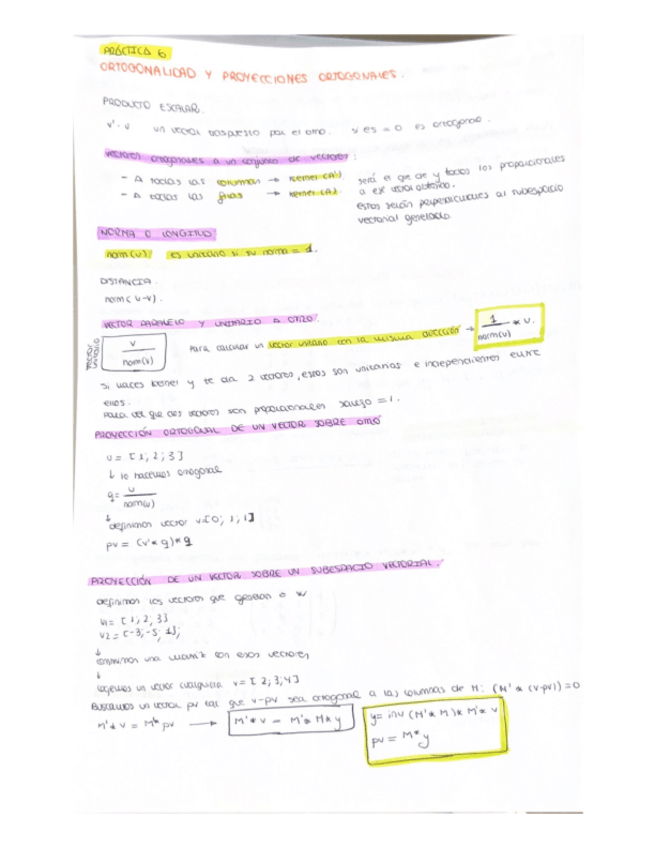 PRÁCTICA 6
ORTOGONALIDAD Y PROYECCIONES ORTOGONALES.
PRODUCTO ESCALAR.
v'·v un vector traspuesto por el otro. si es = 0 es ortogonal.
vectores ortogonales a un conjunto de vectores:
- A todas las columnas → kernel (A')
- A todas las filas → kernel (A)
será el que de y todos los proporcionales
a ese vector obtenido.
estos serán perpendiculares al subespacio
vectorial generado
NORMA O LONGITUD
norm(v) es unitario si su norma = 1.
DISTANCIA.
norm(u-v).
VECTOR PARALELO Y UNITARIO A OTRO.
vector unitario
v / norm(v)
Para calcular un vector unitario con la misma dirección → 1 / norm(v) * v.
Si haces kernel y te da 2 vectores, estos son unitarios e independientes entre
ellos.
Para ver que dos vectores son proporcionales rango = 1.
PROYECCIÓN ORTOGONAL DE UN VECTOR SOBRE OTRO
u = [1; 2; 3]
↓ lo hacemos ortogonal
q = u / norm(u)
↓ definimos vector v=[0; 1; 1]
pv = (v'*q)*q
PROYECCIÓN DE UN VECTOR SOBRE UN SUBESPACIO VECTORIAL.
definimos los vectores que generan a W
v1 = [1; 2; 3]
v2 = [-3; -5; 1];
↓
construimos una matriz con esos vectores
↓
cogemos un vector cualquiera v = [2; 3; 4]
Buscamos un vector pv tal que v-pv sea ortogonal a las columnas de M: (M'*(v-pv)) = 0
M'*v = M'*pv → M'*v = M'*M*y
y = inv(M'*M)*M'*v
pv = M*y